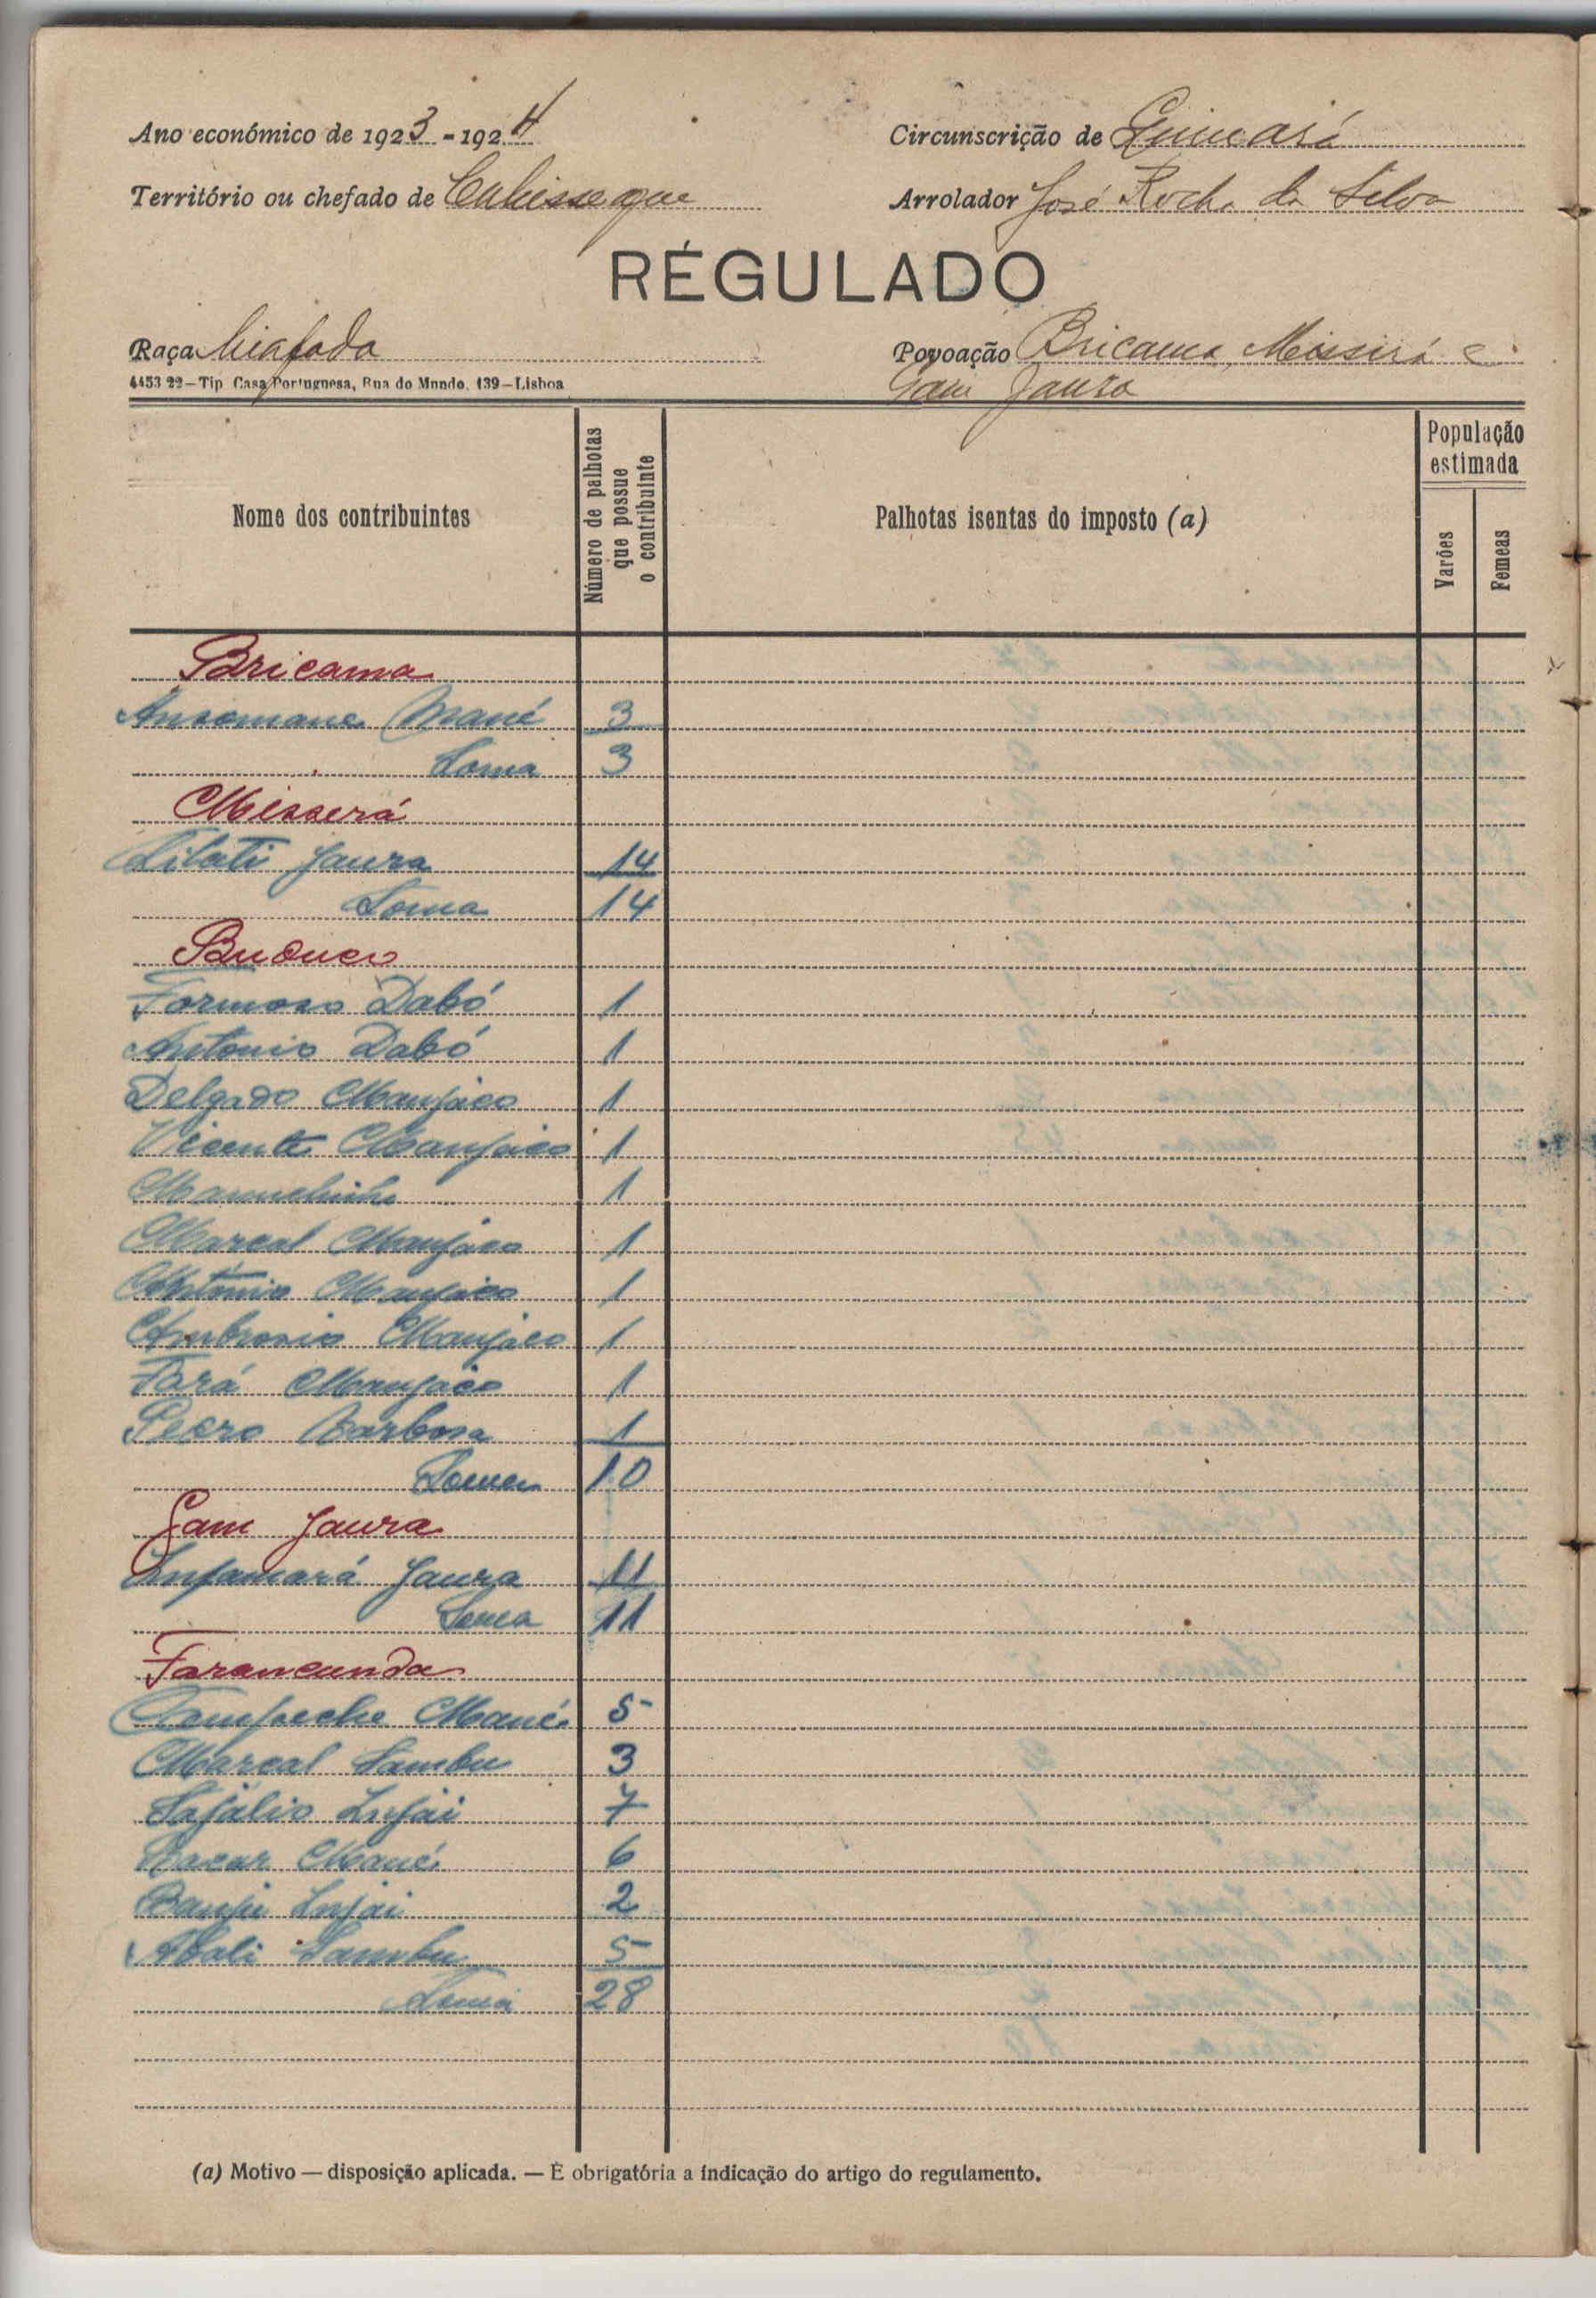 Ano económico de 1923-1924
Circunscrição de Quinará
Território ou chefado de Cubisseque
Arrolador José Rocha da Silva
RÉGULADO
Raça Biafada
Povoação Bricama, Missirá e
Gam Jaura
4453 22—Tip Casa Portuguesa, Rua do Mundo, 139—Lisboa
Nome dos contribuintes
Número de palhotas que possue o contribuinte
Palhotas isentas do imposto (a)
População estimada
Varões
Femeas
Bricama
Ansomane Mané 3
Soma 3
Misserá
Jaura 14
Soma 14
Buduco
Formoso Dabó 1
Antonio Dabó 1
Delgado Manjaco 1
Vicente Manjaco 1
Manuelinho 1
Marcal Manjaco 1
Antonio Manjaco 1
Ambrosio Manjaco 1
Fará Manjaco 1
Pedro Barbosa 1
Soma 10
Gam Jaura
Infamará Jaura 11
Soma 11
Farancunda
Mané 5
Marcal Sambu 3
Safálio Injai 7
Bacar Mané 6
Injai 2
Sambu 5
Soma 28
(a) Motivo — disposição aplicada. — É obrigatória a indicação do artigo do regulamento.